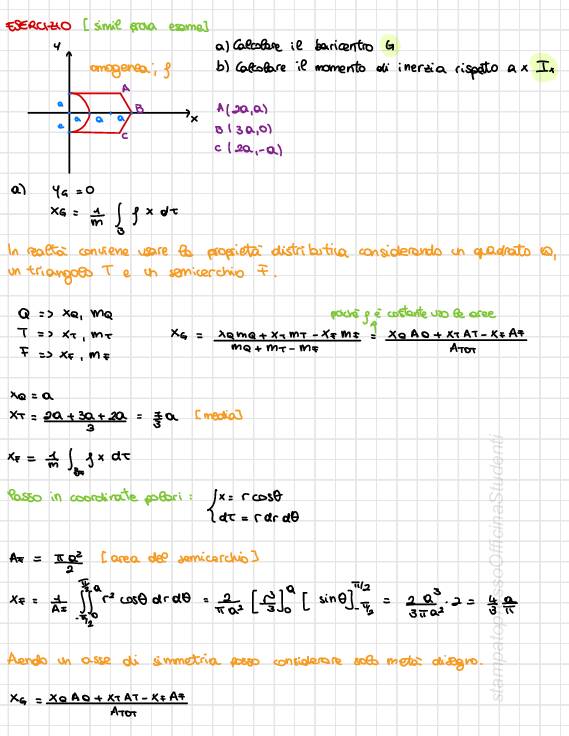 ESERCIZIO [simil prova esame]
a) Calcolare il baricentro G
b) Calcolare il momento di inerzia rispetto a x Ix
omogenea, ρ
y
x
A
B
C
a
a
a
a
a
A (2a,a)
B (3a,0)
C (2a,-a)
a) yG = 0
xG = 1/m ∫B ρ x dτ
In realtà conviene usare la proprietà distributiva considerando un quadrato Q,
un triangolo T e un semicerchio F.
poiché ρ è costante uso le aree
Q => xQ, mQ
T => xT, mT
F => xF, mF
xG = (xQ mQ + xT mT - xF mF)/(mQ + mT - mF) = (xQ AQ + xT AT - xF AF)/ATOT
xQ = a
xT = (2a + 3a + 2a)/3 = 7/3 a [media]
xF = 1/m ∫ ρ x dτ
Passo in coordinate polari: { x = r cosθ
dτ = r dr dθ
AF = πa²/2 [area del semicerchio]
xF = 1/AF ∫-π/2^π/2 ∫0^a r² cosθ dr dθ = 2/πa² [r³/3]0^a [sinθ]-π/2^π/2 = 2a³/3πa² · 2 = 4/3 a/π
Avendo un asse di simmetria posso considerare solo metà disegno.
xG = (xQ AQ + xT AT - xF AF)/ATOT
stampatoppressoOfficinaStudenti